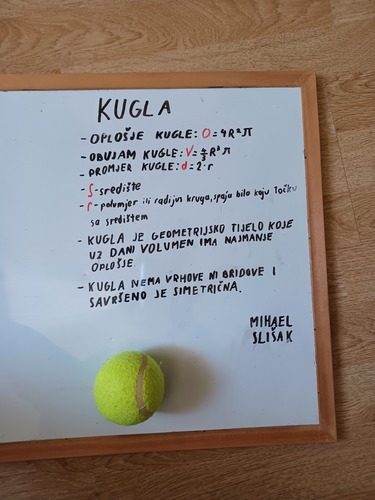 KUGLA
- OPLOŠJE KUGLE: O = 4R²π
- OBUJAM KUGLE: V = 4/3 R³π
- PROMJER KUGLE: d = 2·r
S - središte
- r - polumjer ili radijus kruga, spaja bilo koju točku
sa središtem
- KUGLA JE GEOMETRIJSKO TIJELO KOJE
UZ DANI VOLUMEN IMA NAJMANJE
OPLOŠJE.
- KUGLA NEMA VRHOVE NI BRIDOVE I
SAVRŠENO JE SIMETRIČNA.
MIHAEL
SLIŠAK